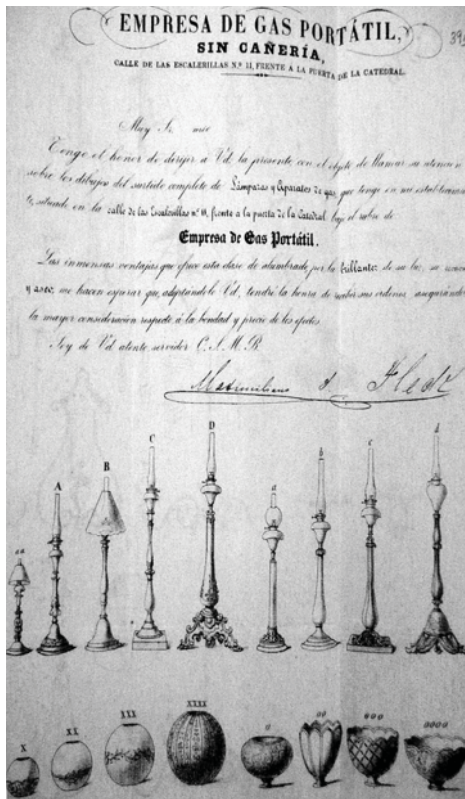 EMPRESA DE GAS PORTÁTIL,
SIN CAÑERÍA,
CALLE DE LAS ESCALERILLAS N.º 11, FRENTE A LA PUERTA DE LA CATEDRAL.
Muy Sr. mio
Tengo el honor de dirijir a Vd. la presente con el objeto de llamar su atencion
sobre los dibujos del surtido completo de Lámparas y Aparatos de gas, que tengo en mi establecimien
to, situado en la calle de las Escalerillas nº 11, frente á la puerta de la Catedral bajo el rubro de
Empresa de Gas Portátil.
Las inmensas ventajas que ofrece esta clase de alumbrado por la brillantez de su luz, su
y aseo, me hacen esperar que adoptándolo Vd., tendré la honra de recibir sus ordenes asegurándole
la mayor consideracion respecto á la bondad y precio de los efectos.
Soy de Vd. atento servidor
Maximiliano
aa A B C D a b c d
X XX XXX XXXX o oo ooo oooo